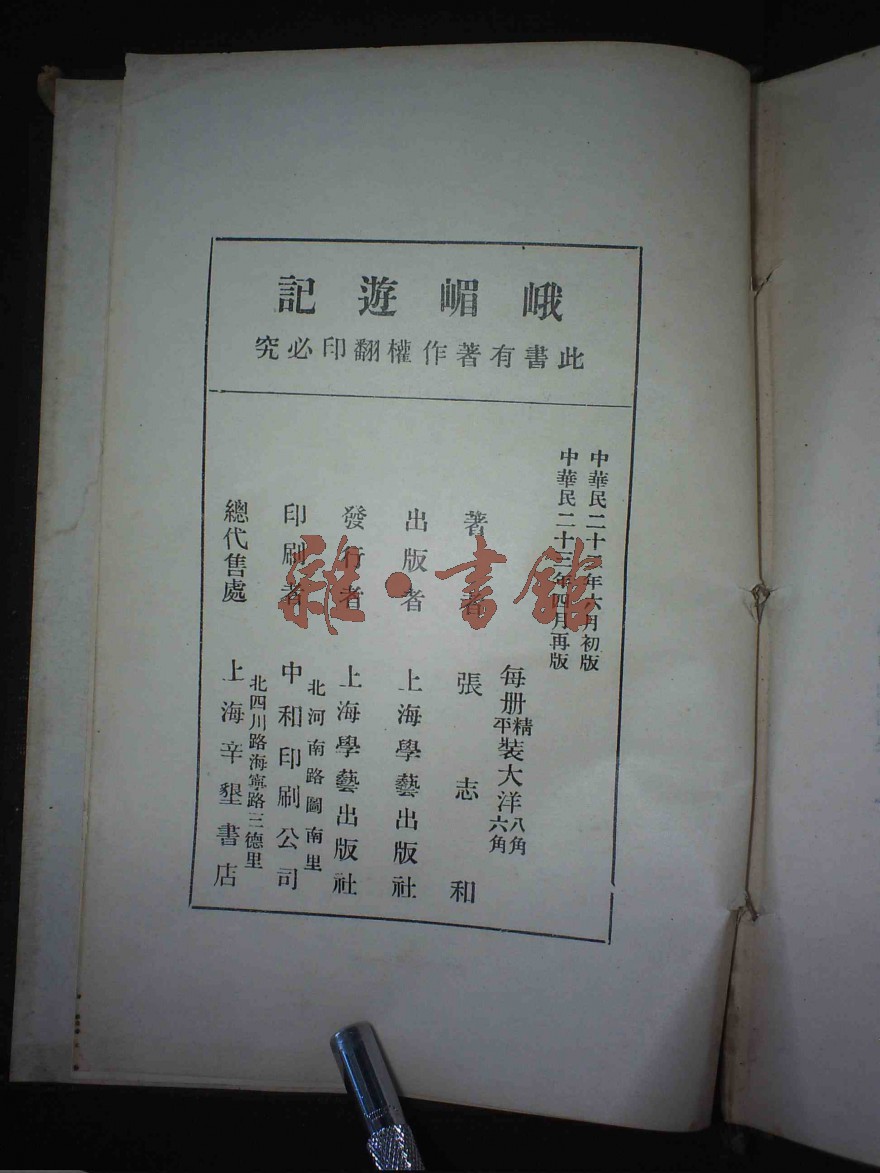 峨嵋遊記
此書有著作權翻印必究
中華民二十年六月初版
中華民二十三年四月再版
每册精平裝大洋八角六角
著者 張志和
出版者 上海學藝出版社
發行者 上海學藝出版社
北河南路圖南里
印刷者 中和印刷公司
北四川路海寧路三德里
總代售處 上海辛墾書店
雜·書館